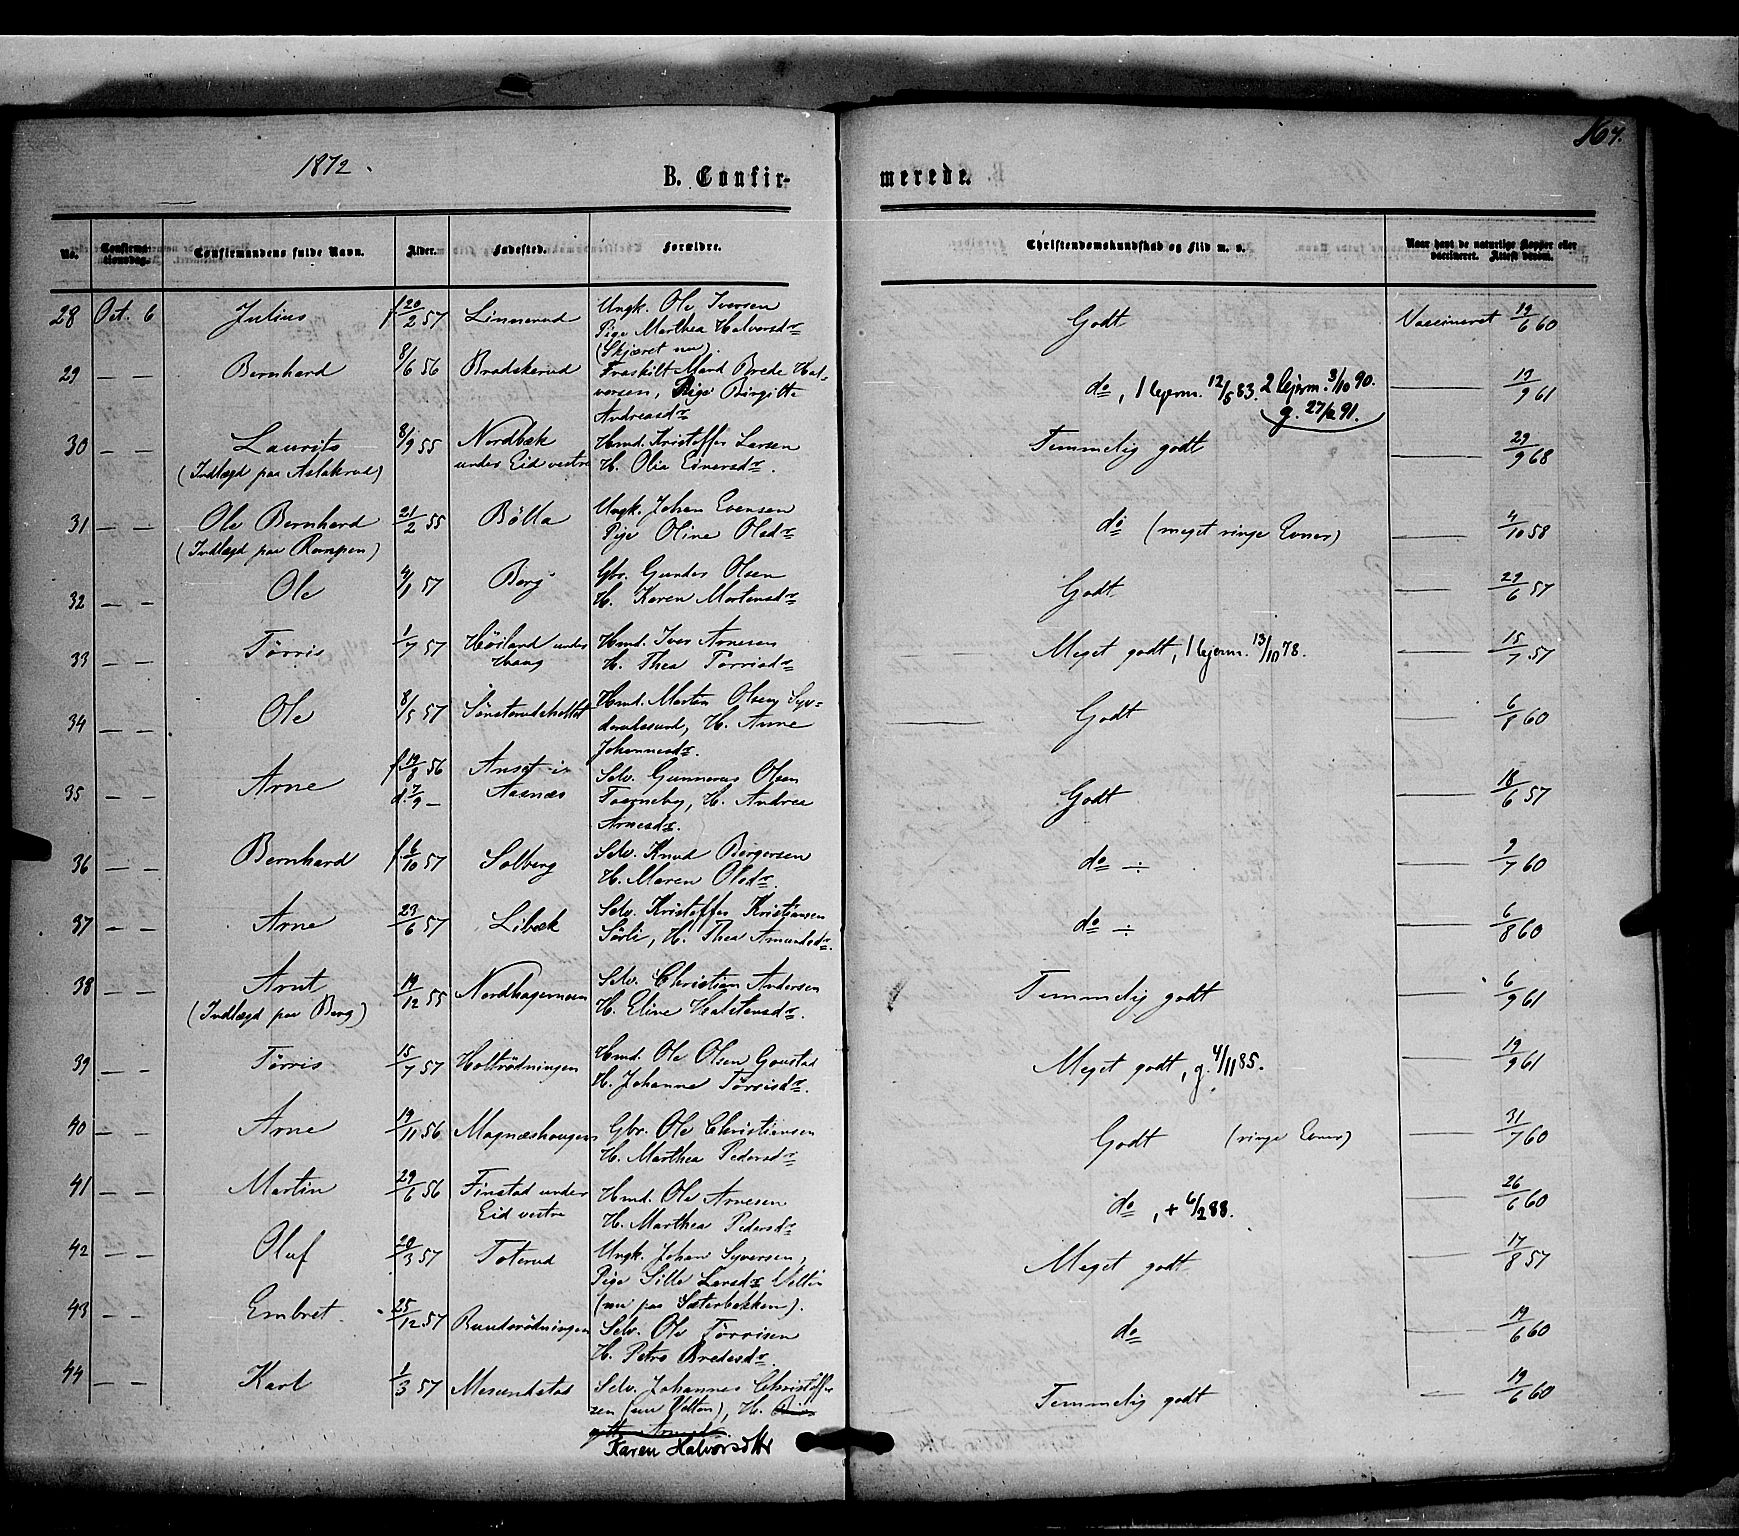 167.
1872.
B. Confirmerede.
No. Confirmationsdag. Confirmandens fulde Navn. Alder. Fødested. Forældre. Christendomskundskab og Flid m. v. Naar havt de naturlige Kopper eller vaccineret. Attest derom.
28 Oct. 6 Julius f 20/2 57 Linnerud Ungk. Ole Iversen Godt Vaccineret 19/6 60
Pige Marthea Halvorsdr
(Skjæret nu).
29 — — Bernhard 8/6 56 Braskerud Fraskilt Mand Brede Hal-
vorsen, Pige Birgitte do, 1 lejerm. 12/5 83. 2 lejerm. 3/10 90. — 17/9 61
Andreasdr g. 27/2 91.
30 — — Laurits 8/9 55 Nordbæk Hmd. Kristoffer Larsen Temmelig godt — 29/9 68
(Indlagd paa Aslakrud) under Eid vestre H. Olia Einersdr.
31 — — Ole Bernhard 21/2 55 Bölla Ungk. Johan Evensen do (meget ringe Evner) — 4/10 58
(Indlagd paa Rampen) Pige Oline Olsdr
32 — — Ole 4/1 57 Berg Gbr. Gunder Olsen Godt — 29/6 57
H. Karen Mortensdr
33 — — Törris 1/7 57 Höiland under Haug Hmd. Iver Arnesen Meget godt, 1 lejerm. 13/10 78. — 15/7 57
H. Thea Törrisdr
34 — — Ole 8/5 57 Hmd. Martin Olsen Godt — 6/8 60
H. Anne
Johannesdr.
35 — — Arne f 19/8 56 Anset i Selv. Gunnerus Olsen Godt — 18/6 57
d. 7/9 — Aasnæs Taarneby, H. Andrea
Arnesdr.
36 — — Bernhard f 6/10 57 Solberg Selv. Knud Bergersen do ÷ — 9/7 60
H. Maren Olsdr.
37 — — Arne 23/6 57 Libæk Selv. Kristoffer Kristiansen do ÷ — 6/8 60
Sörli, H. Thea Amundsdr.
38 — — Arnt 19/12 55 Nordhagemoen Selv. Christian Andersen Temmelig godt — 6/9 61
(Indlagd paa Berg) H. Eline Halstensdr.
39 — — Törris 15/7 57 Holtrödningen Hmd. Ole Olsen Goustad Meget godt, g. 4/11 85. — 19/9 61
H. Johanne Törrisdr.
40 — — Arne 19/11 56 Magnæshaugen Gbr. Ole Christiansen Godt (ringe Evner) — 31/7 60
H. Marthea Pedersdr
41 — — Martin 29/6 56 Finstad under Hmd. Ole Arnesen do, + 6/2 88. — 26/6 60
Eid vestre H. Marthea Pedersdr
42 — — Oluf 20/3 57 Toterud Ungk. Johan Syversen, Meget godt — 17/8 57
Pige Sille Larsdr Velten
(nu paa Sæterbakken).
43 — — Embret 25/12 57 Bundsrödningen Selv. Ole Törrisen do — 19/6 60
H. Petra Bredesdr.
44 — — Karl 1/3 57 Mesundstad Selv. Johannes Christoffer Temmelig godt — 19/6 60
sen (nu Velten), H.
Karen Halvorsdtr